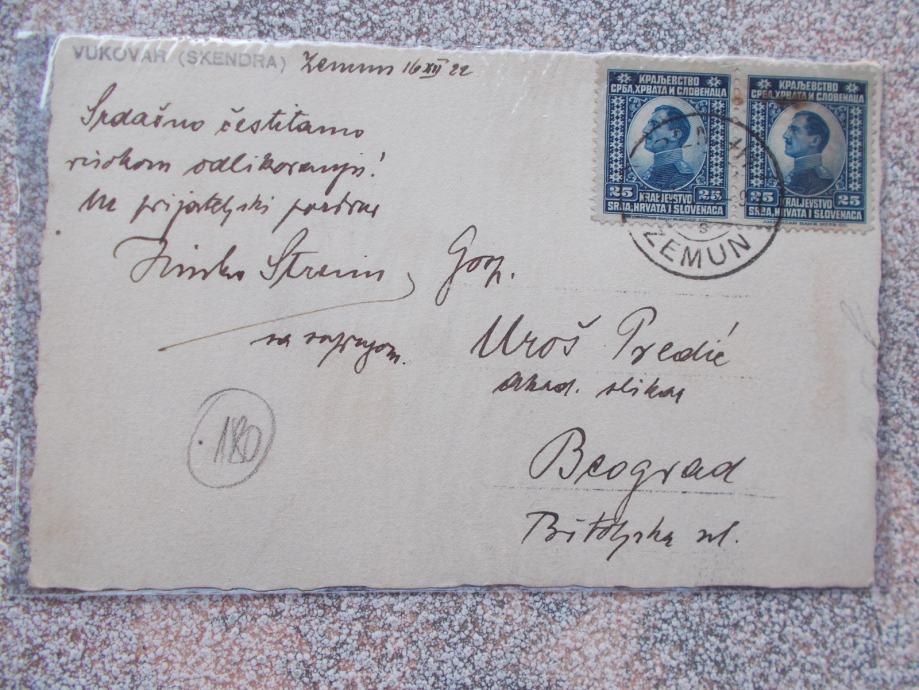 VUKOVAR (SKENDRA) Zemun 16 XII 22
Srdačno čestitamo
visokom odlikovanju!
Uz prijateljski pozdrav
Gosp.
sa suprugom.
Uroš Predić
akad. slikar
Beograd
Bitoljska ul.
180
КРАЉЕВСТВО
СРБА, ХРВАТА И СЛОВЕНАЦА
25 KRALJEVSTVO 25
SRBA, HRVATA I SLOVENACA
КРАЉЕВСТВО
СРБА, ХРВАТА И СЛОВЕНАЦА
25 KRALJEVSTVO 25
SRBA, HRVATA I SLOVENACA
ZEMUN